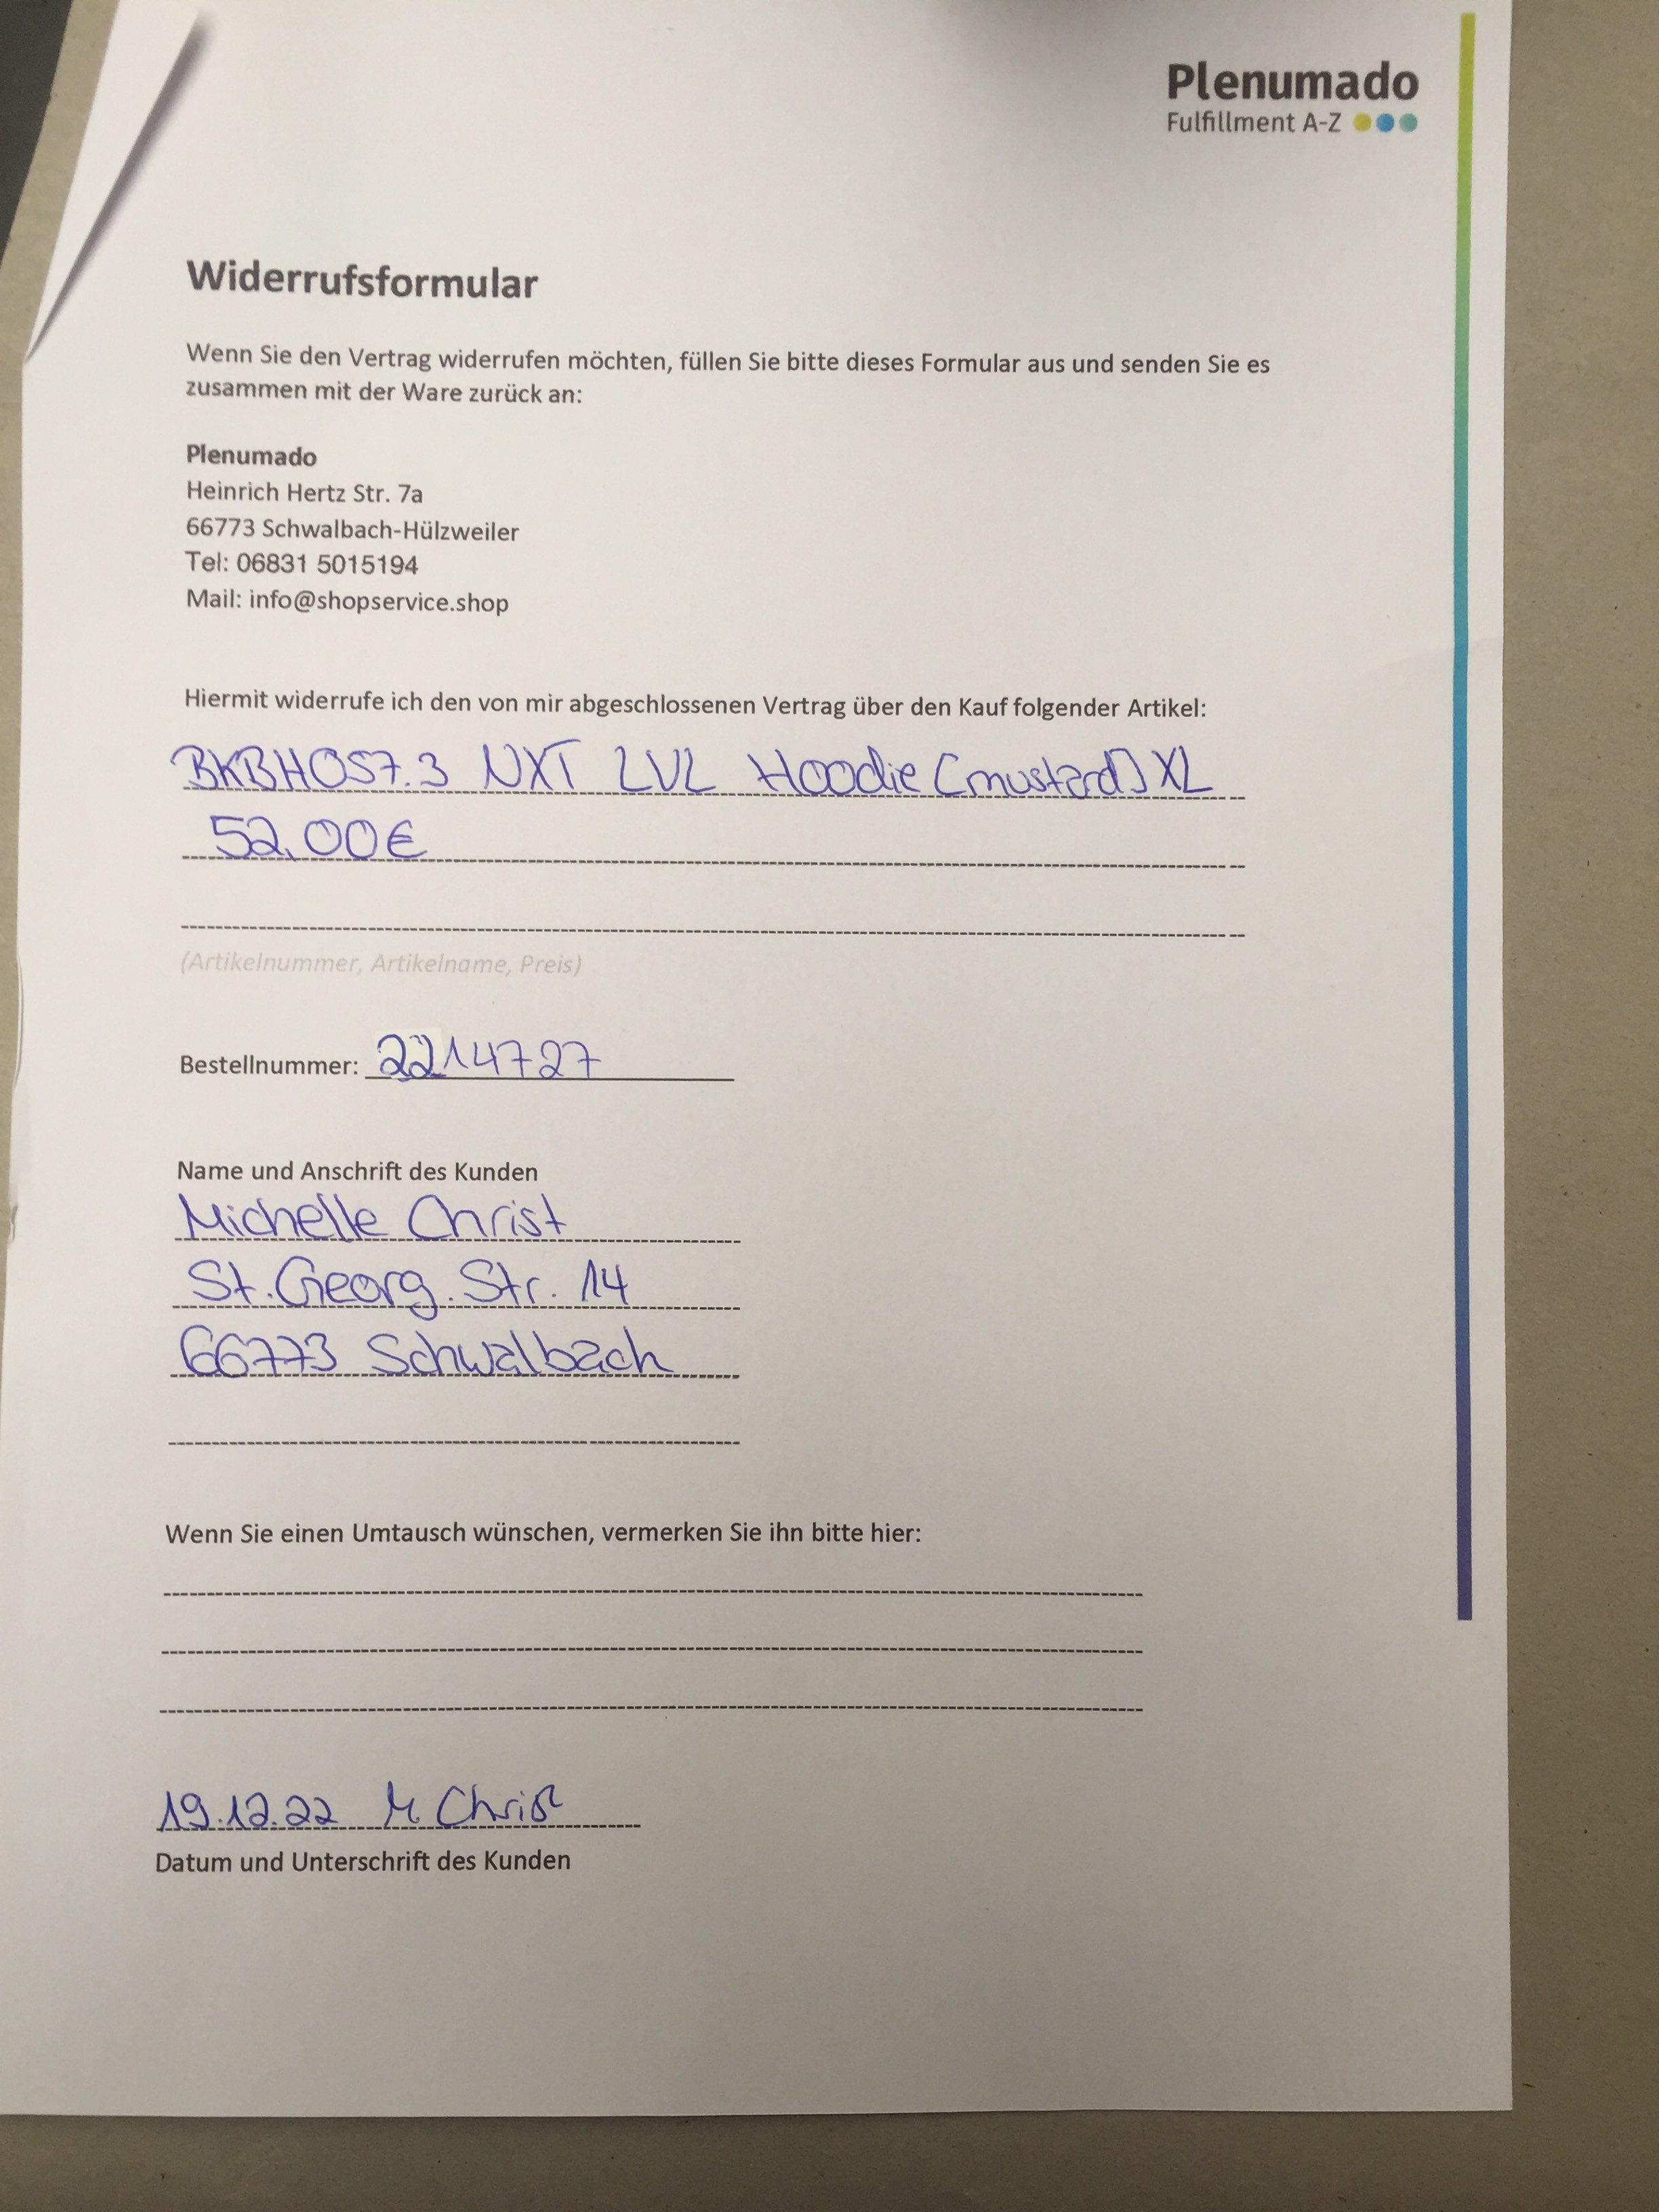 Plenumado
Fulfillment A-Z
Widerrufsformular
Wenn Sie den Vertrag widerrufen möchten, füllen Sie bitte dieses Formular aus und senden Sie es
zusammen mit der Ware zurück an:
Plenumado
Heinrich Hertz Str. 7a
66773 Schwalbach-Hülzweiler
Tel: 06831 5015194
Mail: info@shopservice.shop
Hiermit widerrufe ich den von mir abgeschlossenen Vertrag über den Kauf folgender Artikel:
BKBHO57.3 NXT LVL Hoodie (mustard) XL
52,00€
(Artikelnummer, Artikelname, Preis)
Bestellnummer: 2214727
Name und Anschrift des Kunden
Michelle Christ
St. Georg. Str. 14
66773 Schwalbach
Wenn Sie einen Umtausch wünschen, vermerken Sie ihn bitte hier:
19.12.22 M. Christ
Datum und Unterschrift des Kunden